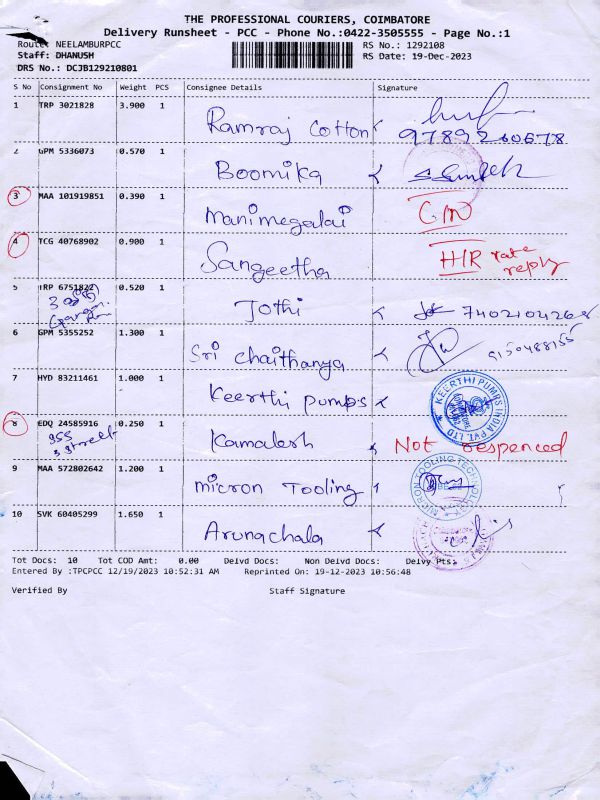 THE PROFESSIONAL COURIERS, COIMBATORE
Delivery Runsheet - PCC - Phone No.:0422-3505555 - Page No.:1
Route: NEELAMBURPCC RS No.: 1292108
Staff: DHANUSH RS Date: 19-Dec-2023
DRS No.: DCJB129210801
S No Consignment No Weight PCS Consignee Details Signature
1 TRP 3021828 3.900 1 Ramraj Cotton
2 GPM 5336073 0.570 1 Boomika
3 MAA 101919851 0.390 1 Manimegalai
4 TCG 40768902 0.900 1 Sangeetha HIR rate
reply
5 TRP 6751822 0.520 1 Jothi 7402104268
6 GPM 5355252 1.300 1 Sri Chaithanya 9150488155
7 HYD 83211461 1.000 1 Keerthi Pumps KEERTHI PUMPS INDIA PVT. LTD
8 EDQ 24585916 0.250 1 Kamalesh Not respenced
9 MAA 572802642 1.200 1 micron Tooling MICRON TOOLING TECHNOLOGY
10 SVK 60405299 1.650 1 Arunachala
Tot Docs: 10 Tot COD Amt: 0.00 Delvd Docs: Non Delvd Docs: Delvy Pts:
Entered By :TPCPCC 12/19/2023 10:52:31 AM Reprinted On: 19-12-2023 10:56:48
Verified By Staff Signature